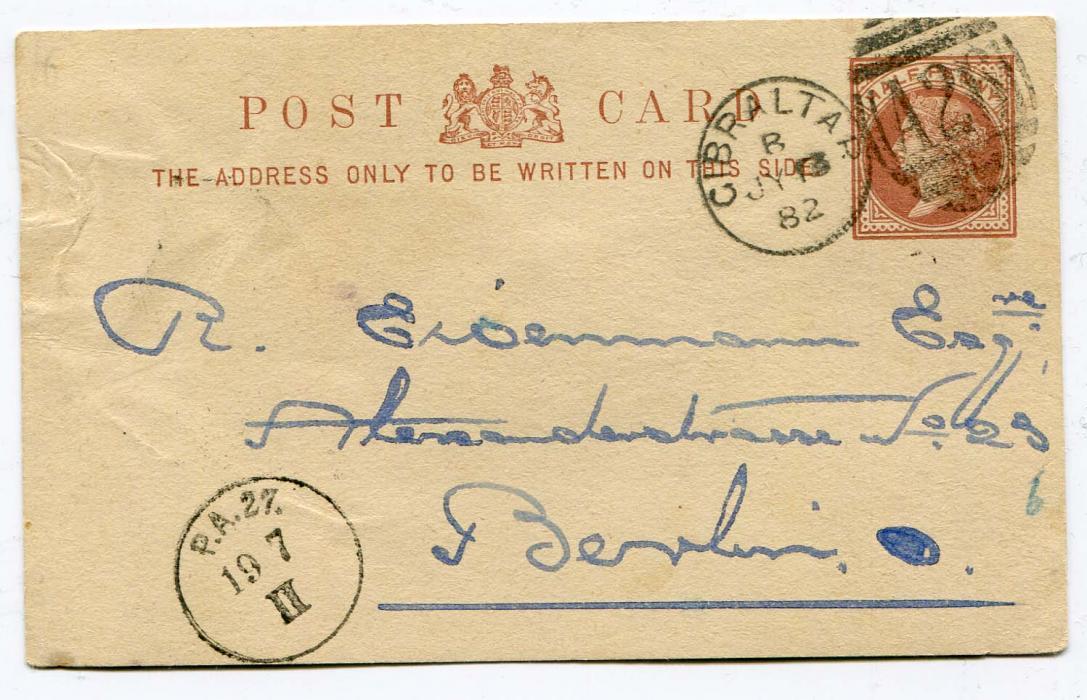 POST CARD
THE ADDRESS ONLY TO BE WRITTEN ON THIS SIDE
HALFPENNY
GIBRALTAR
B
JY 13
82
A26
R. Eisenmann Esqre
Alexanderstrasse No. 23
6
Berlin. O.
P.A.27.
19 7
III